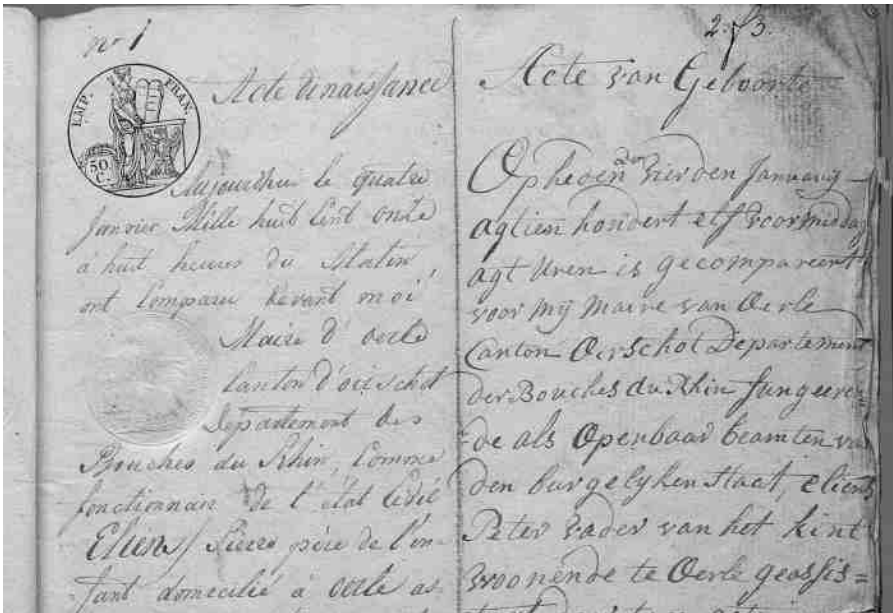 no 1
EMP. FRAN.
50 C.
Acte de naissance
Aujourdhui le quatre
Janvier Mille huit Cent onze
à huit heures du Matin
ont Comparu devant moi
Maire d'oerle
Canton d'oirschot
Departement des
Bouches du Rhin, Comme
fonctionnair de l'état Civil
Eliens / Pierre père de l'en-
fant domicilié à oerle as-
2. f 3.
Acte van Geboorte
Op heden den vierden January
agtien hondert elf voormiddag
agt Uren is gecompareert
voor mij Maire van Oerle
Canton Oirschot Departement
der Bouches du Rhin fungeeren
de als Openbaar beamten van
den burgelyken Staat, Eliens
Peter vader van het kint
woonende te Oerle geassis=